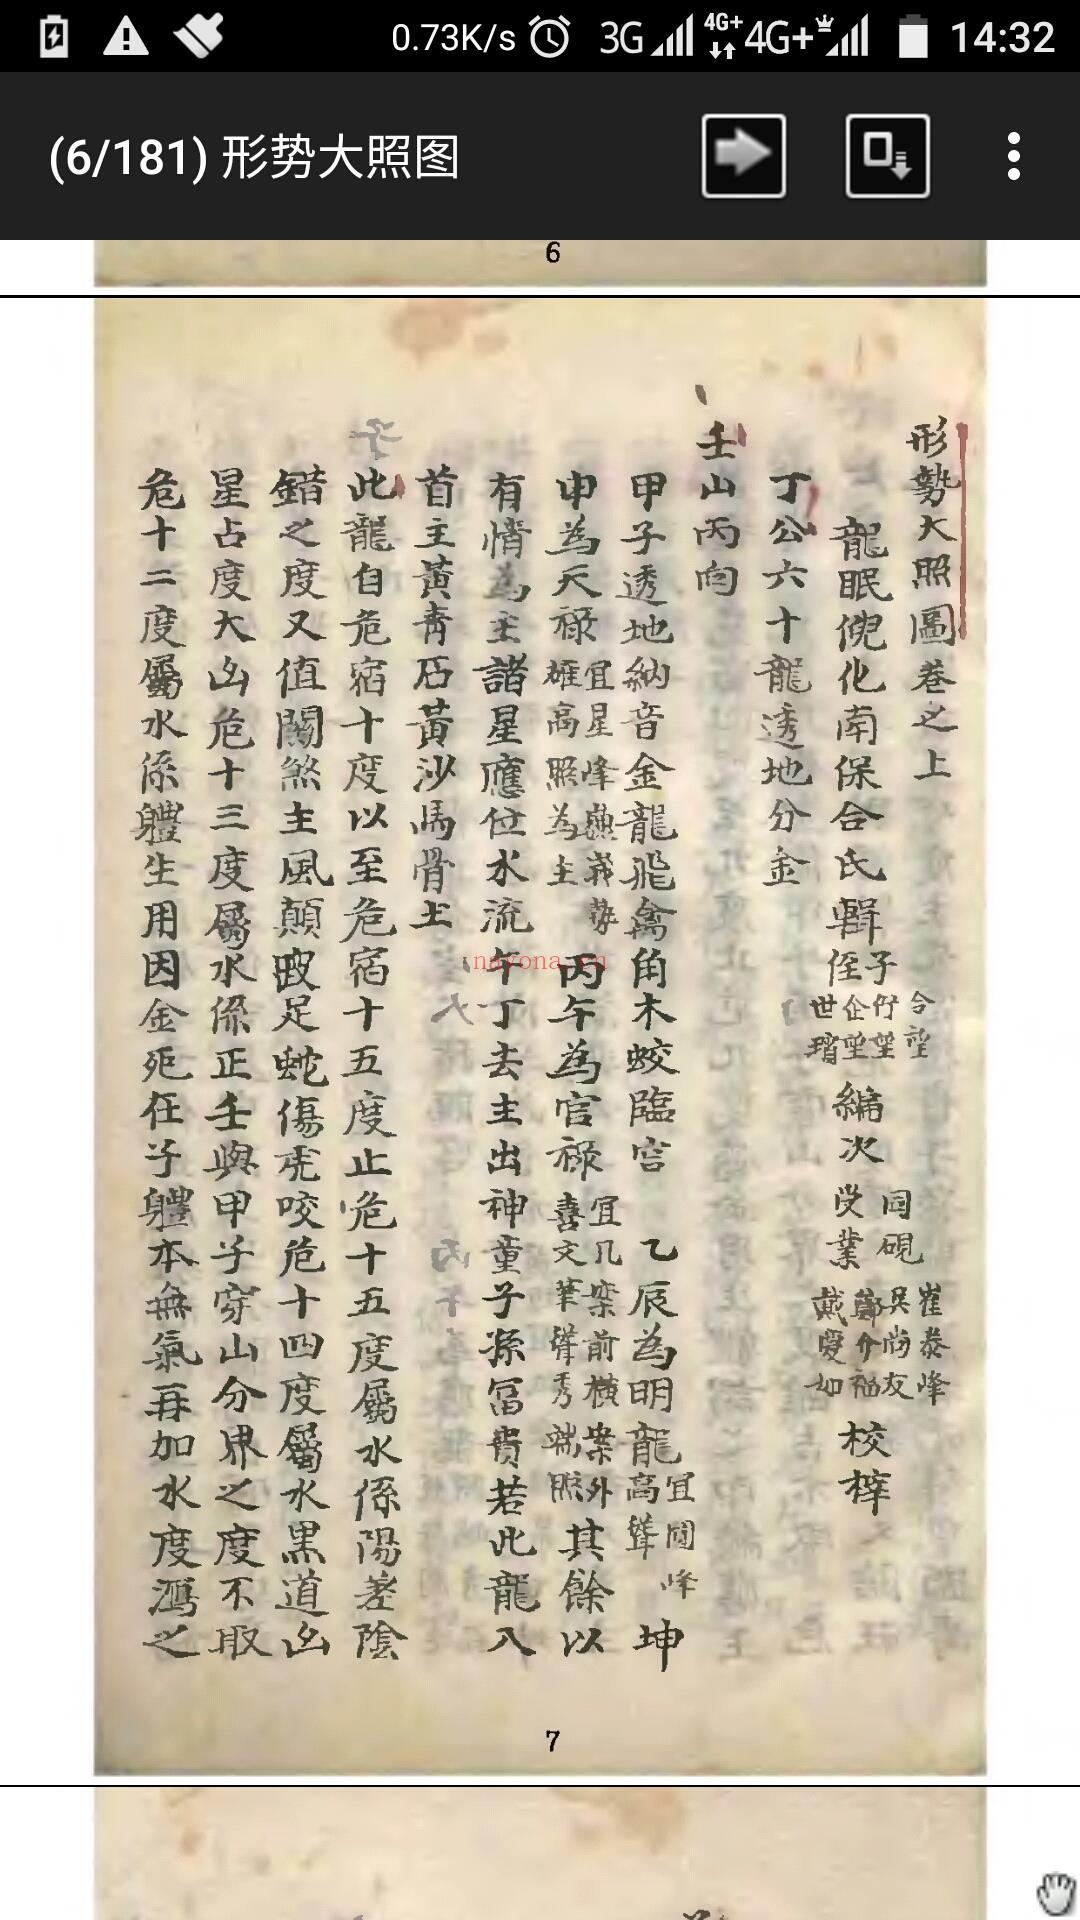 0.73K/s 3G 4G+ 4G+ 14:32
(6/181) 形势大照图
6
形勢大照圖卷之上
龍眠倪化南保合氏輯 子侄 合望 佇望 企望 世瑨 編次 同硯受業 崔泰峰 吳尚友 鄭介福 戴愛如 校梓
丁公六十龍透地分金
壬山丙向
甲子透地納音金龍飛禽角木蛟臨宮 乙辰為明龍 宜間峰高聳 坤
申為天祿 宜星峰巍峩勢雄高照為主 丙午為官祿 宜几案前橫案外喜文筆聳秀端照 其餘以
有情為主諸星應位水流午丁去主出神童子孫冨貴若此龍入
首主黃青石黃沙馬骨土
子
此龍自危宿十度以至危宿十五度止危十五度屬水係陽差陰
錯之度又值關煞主風顛跛足蛇傷虎咬危十四度屬水黑道凶
星占度大凶危十三度屬水係正壬與甲子穿山分界之度不取
危十二度屬水係體生用因金死在子體本無氣再加水度瀉之
nayona.cn
7